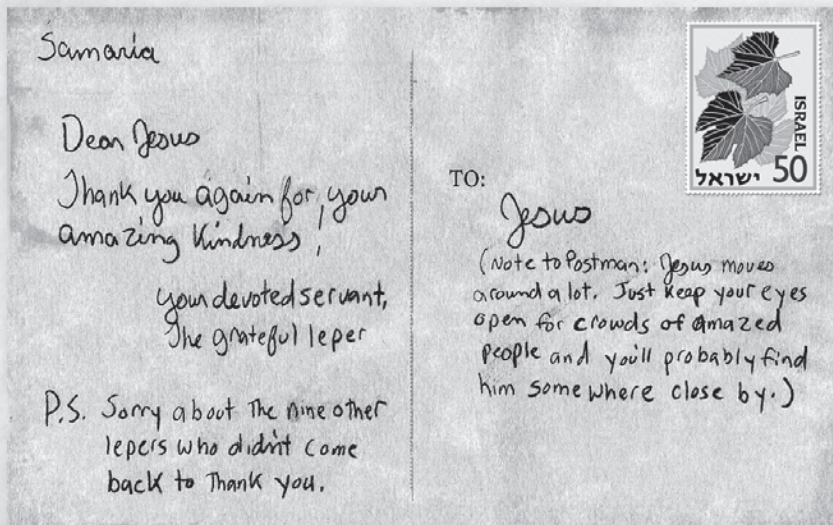 Samaria
Dear Jesus
Thank you again for your
amazing kindness!
your devoted servant,
The grateful leper
P.S. Sorry about the nine other
lepers who didn't come
back to thank you.
ISRAEL
50 ישראל
TO:
Jesus
(Note to Postman: Jesus moves
around a lot. Just keep your eyes
open for crowds of amazed
people and you'll probably find
him somewhere close by.)